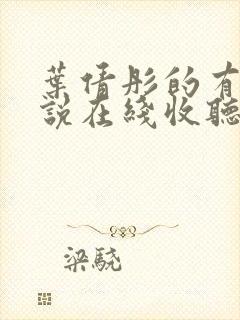 葉倩彤的有
說在綫收聽
梁驍